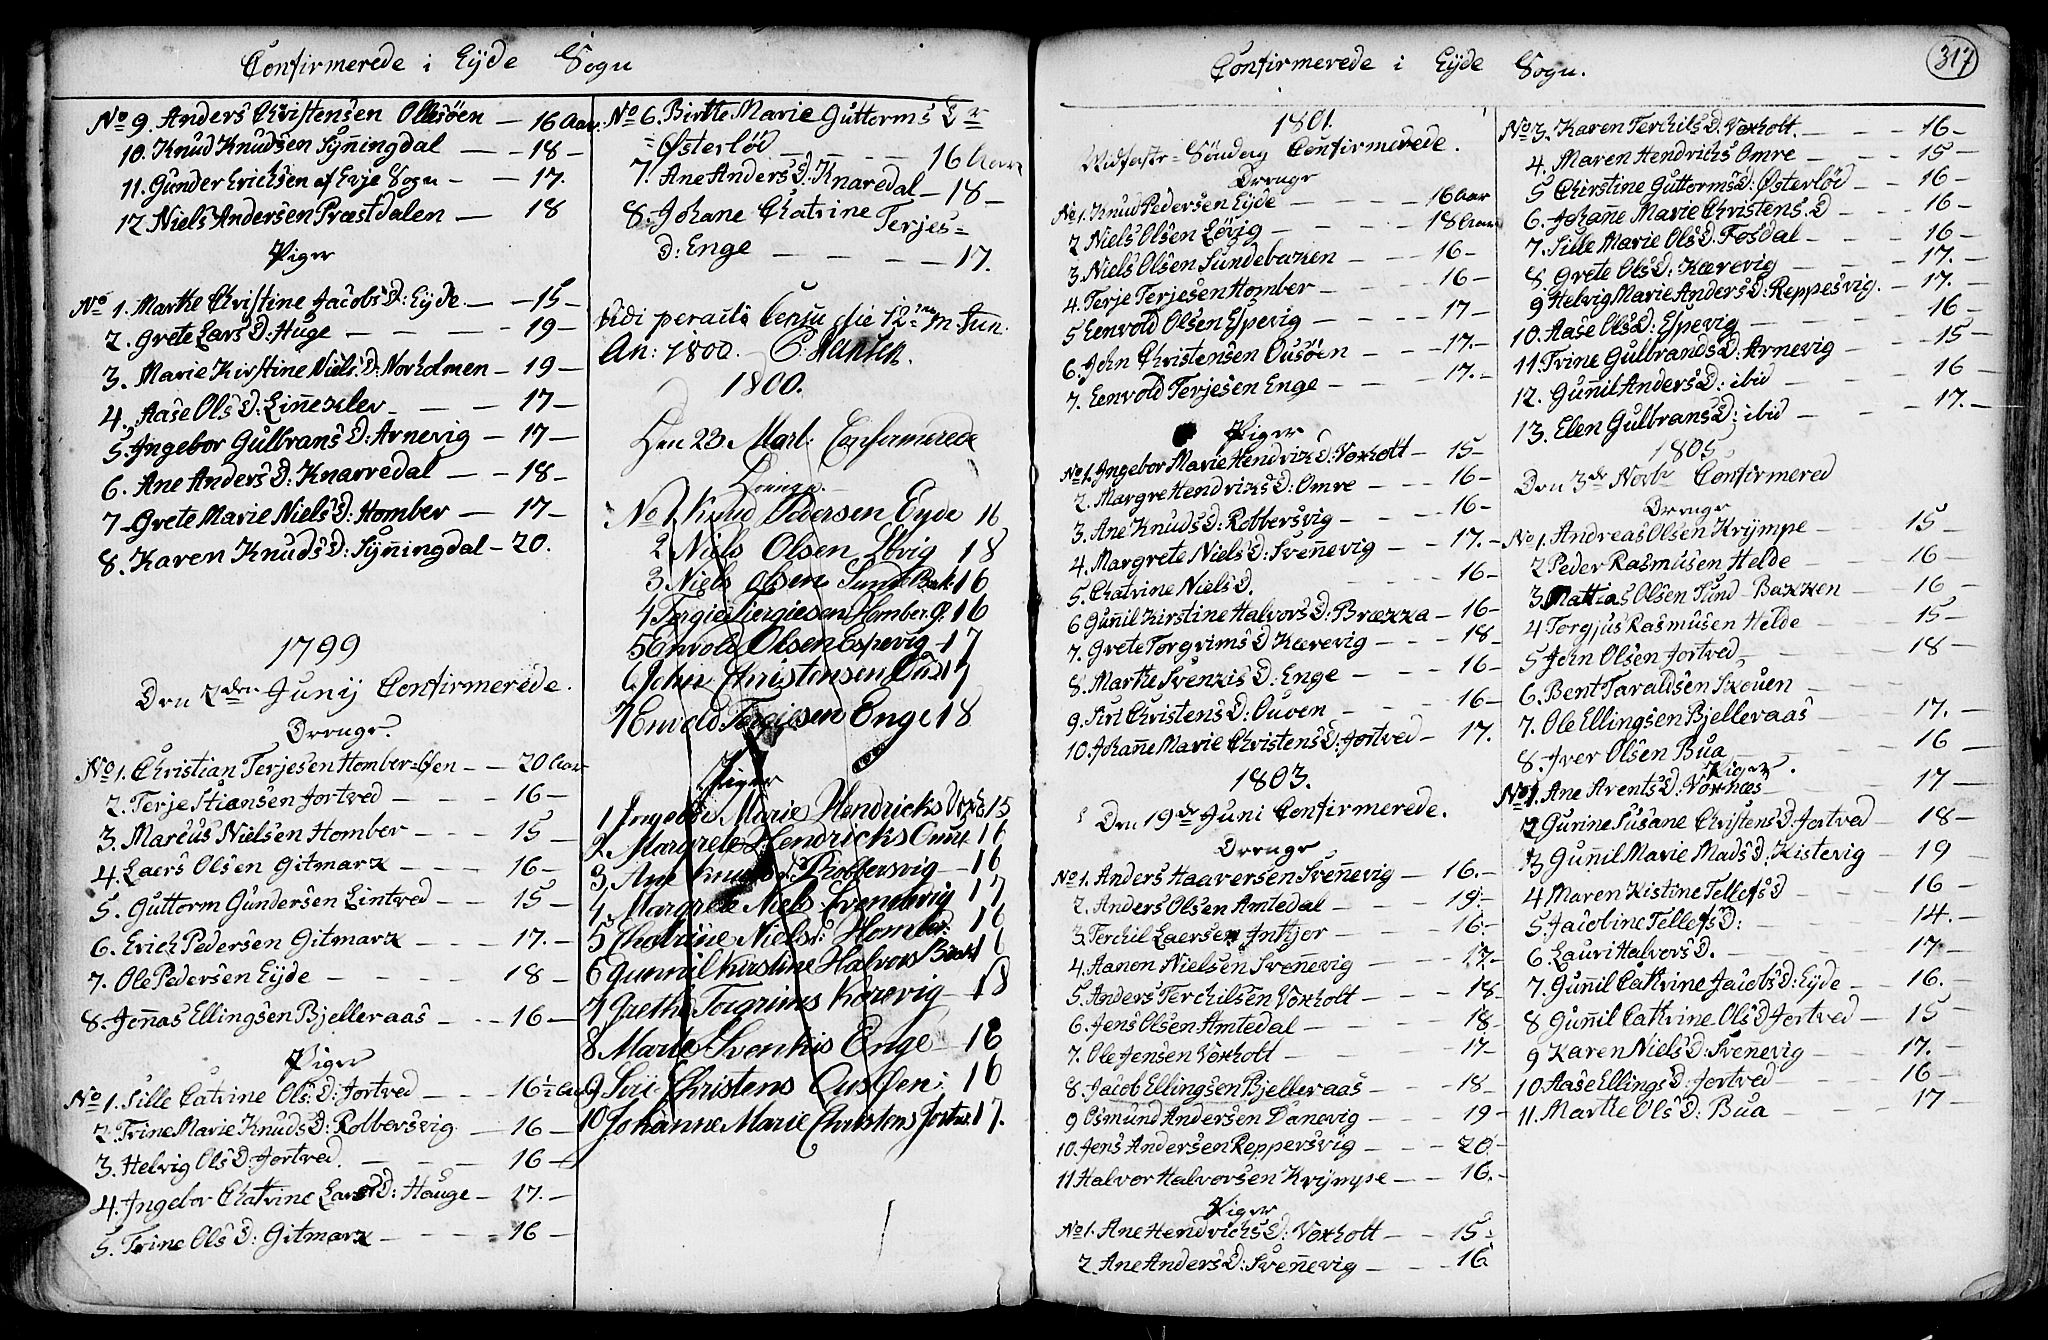 Confirmerede i Eyde Sogn
No 9. Anders Christensen Ollesöen — 16 Aar
10. Knud Knudsen Synningdal — 18 —
11. Gunder Erichsen af Evje Sogn — 17.
12. Niels Andersen Præstdalen — 18
Piger
No 1. Marthe Christine JacobsD: Eyde — 15 —
2. Grete LarsD: Huge — 19 —
3. Marie Kirstine NielsD: Norholmen — 19 —
4. Aase OlsD: Linneklev — 17 —
5. Ingebor GulbransD: Arnevig — 17 —
6. Ane AndersD: Knarredal — 18 —
7. Grete Marie NielsD: Homber — 17 —
8. Karen KnudsD: Synningdal — 20.
1799
Den 2den Junij Confirmerede.
Drenge.
No 1. Christian Terjesen Homber=Öen — 20 Aar
2. Terje Stiansen Jortved — 16 —
3. Marcus Nielsen Homber — 15 —
4. Laers Olsen Gitmark — 16 —
5. Guttorm Gundersen Lintved — 15 —
6. Erich Pedersen Gitmark — 17. —
7. Ole Pedersen Eyde — 18 —
8. Jonnas Ellingsen Bjelleraas — 16 —
Piger
No 1. Sille Catrine OlsD: Jortved — 16½ Aar
2. Trine Marie KnudsD: Robbersvig — 16 —
3. Helvig OlsD: Jortved. — 16 —
4. Ingebor Chatrine LarsD: Houge — 17. —
5. Trine OlsD: Gitmark — 16 —
No 6. Birthe Marie Guttorms Dr
= Østerlöd — 16 Aar
7. Ane AndersD: Knaredal — 18 —
8. Johane Chatrine Terjes=
D: Enge — 17.
Vidi peracto Censu die 12 Jun.
An: 1800. — C. Hansen.
1800.
Den 23 Mart. Confirmerede
Drenge
No 1 Knud Pedersen Eyde 16
2 Niels Olsen Lövig 18
3 Niels Olsen Sundebak 16
4 Tergie Tergiesen Homber Ø. 16
5 Envold Olsen Espevig 17
6 John Christensen 17
7 Envold Tergiesen Enge 18
Piger
1 Ingebor Marie Hendricks Voxh 15
2. Margrete Hendricks Omre 16
3. Ane Knuds Robbersvig — 16
4. Margrete Niels Svennevig 17
5 Chatrine Niels: Homber: 16
6 Gunnil Kirstine Halvors 16
7 Grethe Torgrims Korevig — 18
8 Marte Svenkis Enge — 16
9 Siri Christens OusÖen: 16
10 Johanne Marie Christens Jortved 17.
Confirmerede i Eyde Sogn.
317
1801.
Midfaste=Söndag Confirmerede.
Drenge
No 1. Knud Pedersen Eyde — 16 Aar
2 Niels Olsen Lövig — 18 Aar
3. Niels Olsen Sundebaken — 16 —
4. Terje Terjesen Homber — 16 —
5 Eenvold Olsen Espevig — 17 —
6. John Christensen Ousöen — 17. —
7. Eenvold Terjesen Enge — 17. —
Piger
No 1. Ingebor Marie HendrikD: Voxholt — 15 —
2. Margre HendriksD: Omre — 16 —
3. Ane KnudsD: Robbersvig — 16 —
4. Margrete NielsD: Svennevig — 17. —
5. Chatrine NielsD. — 16 —
6 Gunil Kirstine HalvorsD: Brækka — 16 —
7. Grete TorgrimsD Kærevig — 18 —
8. Marthe SvenkisD: Enge — 16 —
9. Siri ChristensD: Ouöen — 16 —
10. Johanne Marie ChristensD: Jortved — 17.
1803.
Den 19de Juni Confirmerede.
Drenge
No 1. Anders Haaversen Svennevig — 16. —
2. Anders Olsen Amtedal — 19 —
3. Terchil Laersen Inthjor — 16 —
4. Aanon Nielsen Svennevig — 17. —
5. Anders Terchilsen Voxholt — 18 —
6. Jens Olsen Amtedal — 18 —
7. Ole Jensen Voxholt — 17 —
8. Jacob Ellingsen Bjelleraas — 18 —
9 Osmund Andersen Danevig — 19 —
10. Jens Andersen Reppersvig — 20 —
11 Halvor Halvorsen Krympe — 16. —
Piger
No 1. Ane HendrichsD: Voxholt — 15 —
2. Ane AndersD: Svennevig — 16
No 3. Karen TerchilsD. Voxholt. — 16 —
4. Maren Hendrichs Omre — 15 —
5 Chirstine GuttormsD: Østerlöd — 16 —
6. Johanne Marie Christens.D — 16 —
7. Sille Marie OlsD: Fosdal — 16 —
8. Grete OlsD: Kærevig — 17. —
9 Helvig Marie AndersD: Reppesvig. — 17. —
10. Aase OlsD: Espevig — 16 —
11 Trine GulbrandsD: Arnevig — 15 —
12. Gunnil AndersD: ibid — 16 —
13. Elen GulbransD: ibid — 17. —
1805
Den 3de Novbr Confirmered
Drenge
No 1. Andreas Olsen Krympe — 15 —
2 Peder Rasmusen Helde — 16 —
3. Mattias Olsen Sund-Bakken — 16 —
4 Torgjus Rasmusen Helde — 15 —
5 John Olsen Jortved — 18 —
6. Bent Taraldsen Skouen —
7. Ole Ellingsen Bjelleraas — 17. —
8. Iver Olsen Bua — 16 —
Piger.
No 1. Ane ArentsD: Voxnæs — 17 —
2 Gurine Susane ChristensD: Jortved — 18 —
3 Gunnil Marie MadsD. Kistevig — 19 —
4 Maren Kistine TellefsD — 16 —
5 Jacobine TellefsD: — 14. —
6. Lauri HalvorsD. — 17 —
7. Gunnil Cathrine JacobsD: Eyde — 16. —
8 Gunnil Cathrine OlsD Jortved — 15 —
9 Karen NielsD: Svennevig — 17. —
10. Aase EllingsD: Jortved — 16 —
11. Marthe OlsD: Bua — 17 —